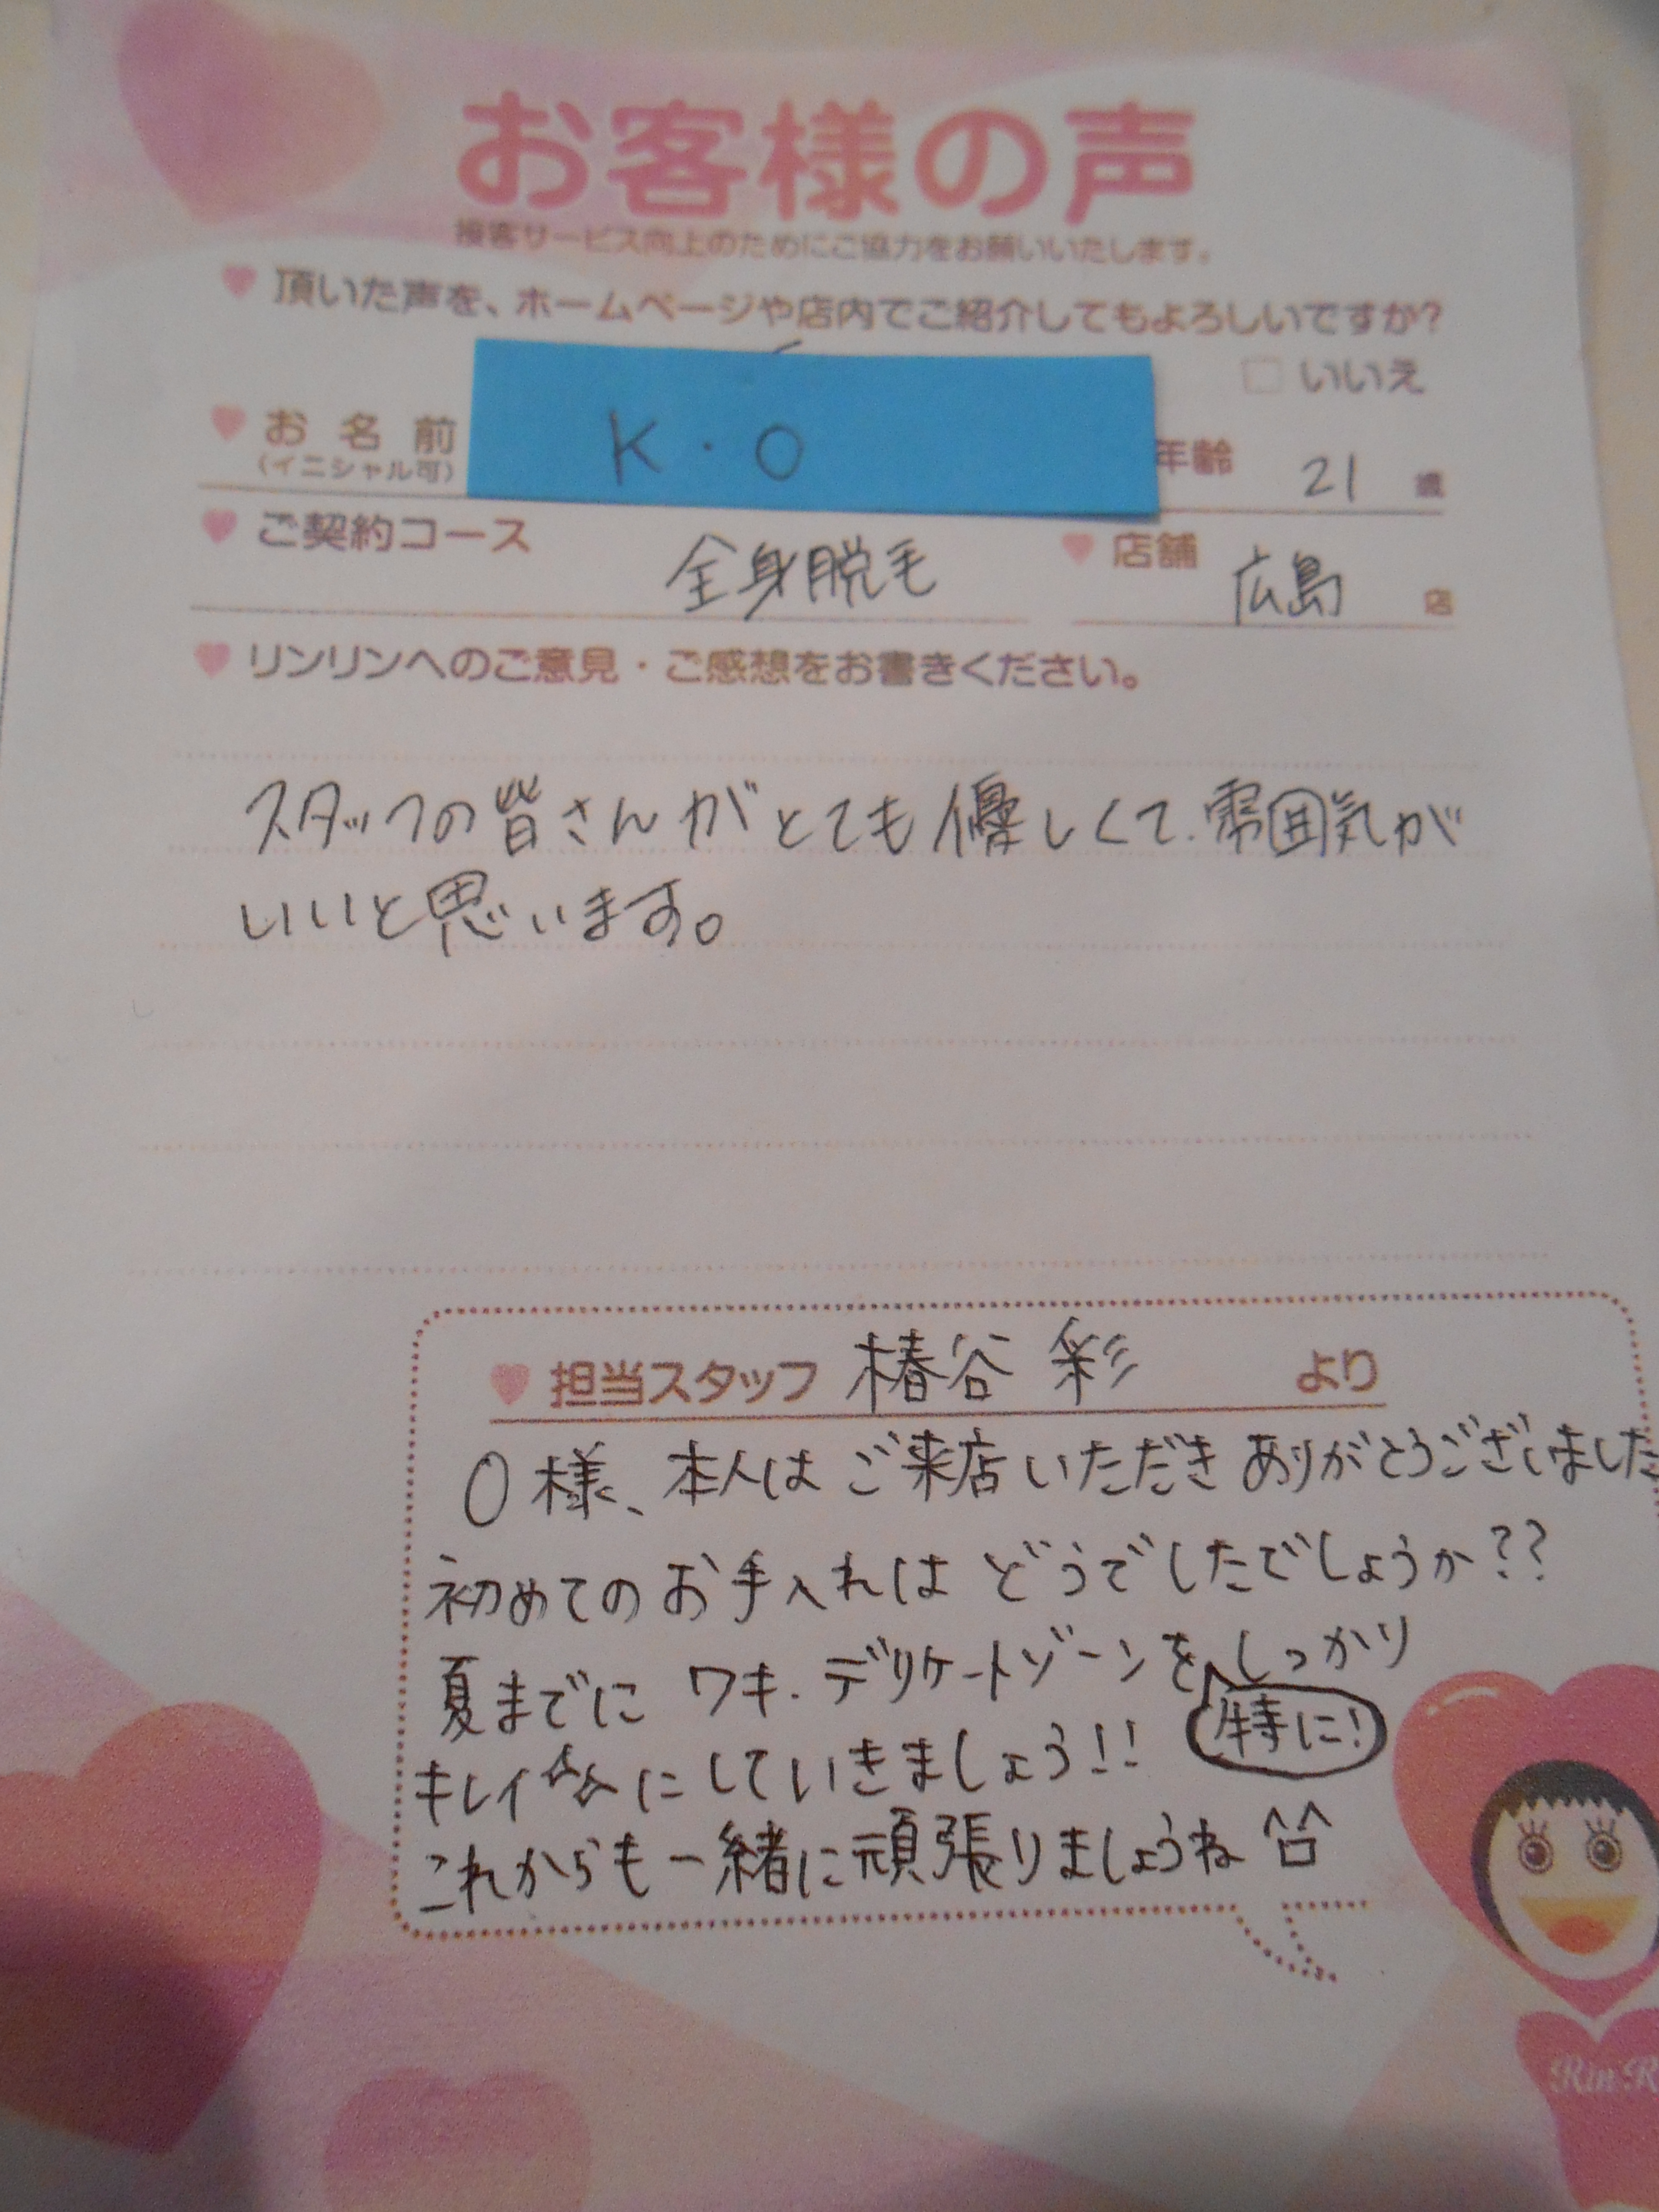 お客様の声
接客サービス向上のためにご協力をお願いいたします。
頂いた声を、ホームページや店内でご紹介してもよろしいですか?
□ いいえ
お名前 K・O 年齢 21 歳
(イニシャル可)
ご契約コース 全身脱毛 店舗 広島 店
リンリンへのご意見・ご感想をお書きください。
スタッフの皆さんがとても優しくて、雰囲気が
いいと思います。
担当スタッフ 椿谷 彩 より
O様、本人はご来店いただきありがとうございました
初めてのお手入れはどうでしたでしょうか??
夏までにワキ・デリケートゾーンをしっかり
特に!
キレイ☆☆にしていきましょう!!
これからも一緒に頑張りましょうね^□^
Rin R